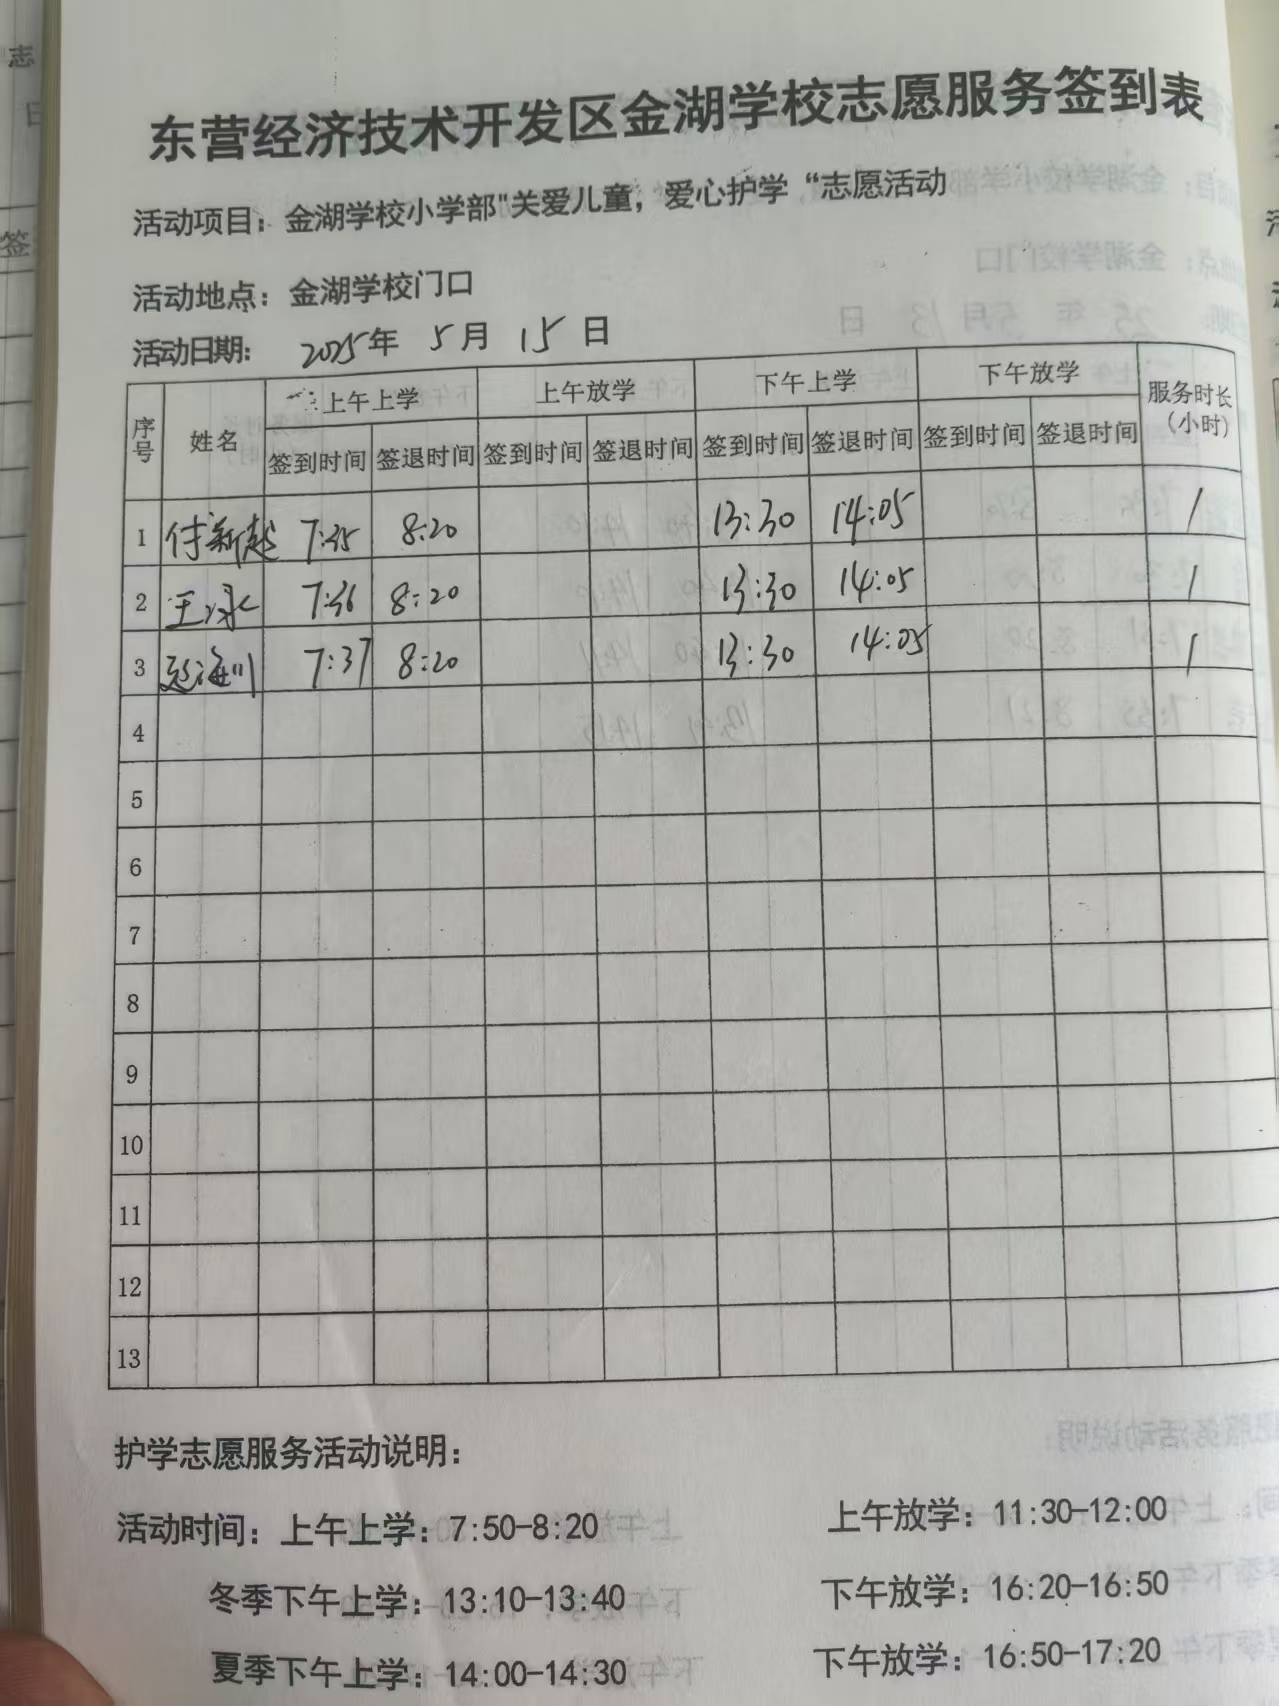 东营经济技术开发区金湖学校志愿服务签到表
活动项目：金湖学校小学部"关爱儿童，爱心护学“志愿活动
活动地点：金湖学校门口
活动日期： 2025年 5月 15日
序号 姓名 上午上学 上午放学 下午上学 下午放学 服务时长（小时）
签到时间 签退时间 签到时间 签退时间 签到时间 签退时间 签到时间 签退时间
1 付新越 7:35 8:20 13:30 14:05 1
2 王永 7:36 8:20 13:30 14:05 1
3 赵海川 7:37 8:20 13:30 14:05 1
4
5
6
7
8
9
10
11
12
13
护学志愿服务活动说明：
活动时间：上午上学：7:50-8:20 上午放学：11:30-12:00
冬季下午上学：13:10-13:40 下午放学：16:20-16:50
夏季下午上学：14:00-14:30 下午放学：16:50-17:20